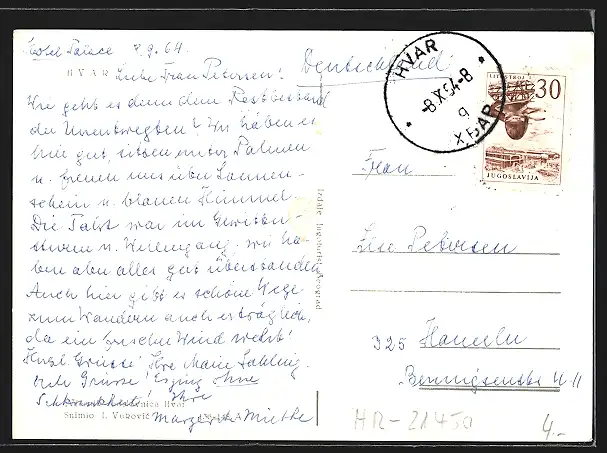 Hotel Palace 8.9.64
HVAR Liebe Frau Petersen!
Wie geht es denn dem Restbestand
der Unentwegten? Wir haben es
hier gut, sitzen unter Palmen
u. freuen uns über Sonnen-
schein u. blauen Himmel
Die Fahrt war im Gewitter-
sturm u. Wellengang, wir ha-
ben aber alles gut überstanden
Auch hier gibt es schöne Wege
zum Wandern auch erträglich,
da ein frischer Wind weht!
Herzl. Grüße! Ihre Marie
Grüsse! ohne
Ihre
Hvar
Snimio
Margarete Miethe
Izdaje Beograd
Deutschland
HVAR
ХВАР
LITOSTROJ
30
JUGOSLAVIJA
Frau
Lise Petersen
325 Hameln
Bennigsenstr. 11
HR-2145a
4.-